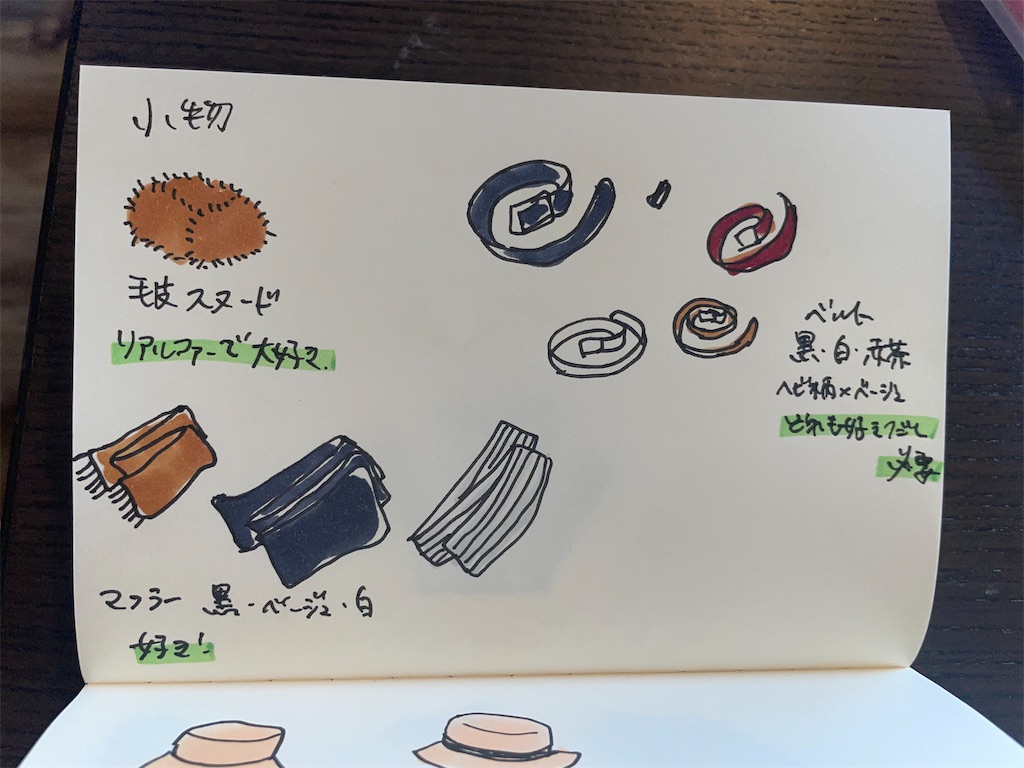 小物
毛皮スヌード
リアルファーで大好き.
ベルト
黒・白・赤茶
ヘビ柄×ベージュ
どれも好きだし
必要
マフラー 黒・ベージュ・白
好き!